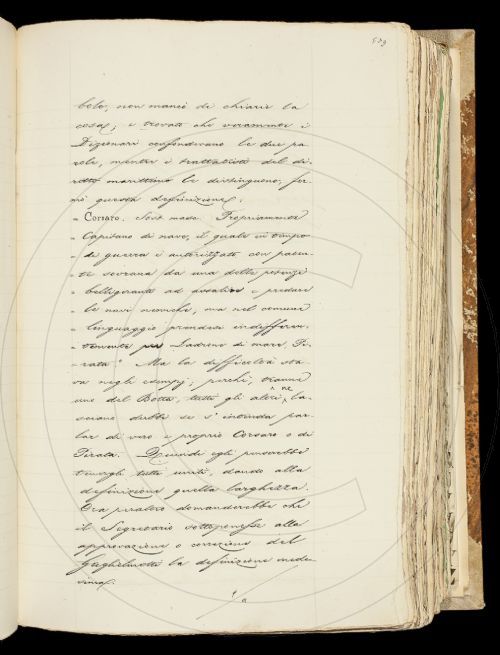 bole, non mancò di chiarir la
cosa; e trovato che veramente i
Dizionari confondevano le due pa
role, mentre i trattatisti del di
ritto marittimo le distinguono, for
mò questa definizione:
" Corsaro. Sost. masc. Propriamente
" Capitano di nave, il quale in tempo
" di guerra è autorizzato con paten
" te sovrana da una delle potenze
" belligeranti ad assalire e predare
" le navi nemiche, ma nel comune
" linguaggio prendesi indifferen
" temente per Ladrone di mare, Pi
rata". Ma la difficoltà sta
va negli esempj; perchè, tranne
uno del Botta, tutti gli altri ne la
sciano dubbi se s'intenda par
lar di vero e proprio Corsaro o di
Pirata. Quindi egli penserebbe
tenergli tutti uniti, dando alla
definizione quella larghezza.
Ora piuttosto domanderebbe che
il Segretario sottoponesse alla
approvazione o correzione del
Guglielmotti la definizione mede
sima.